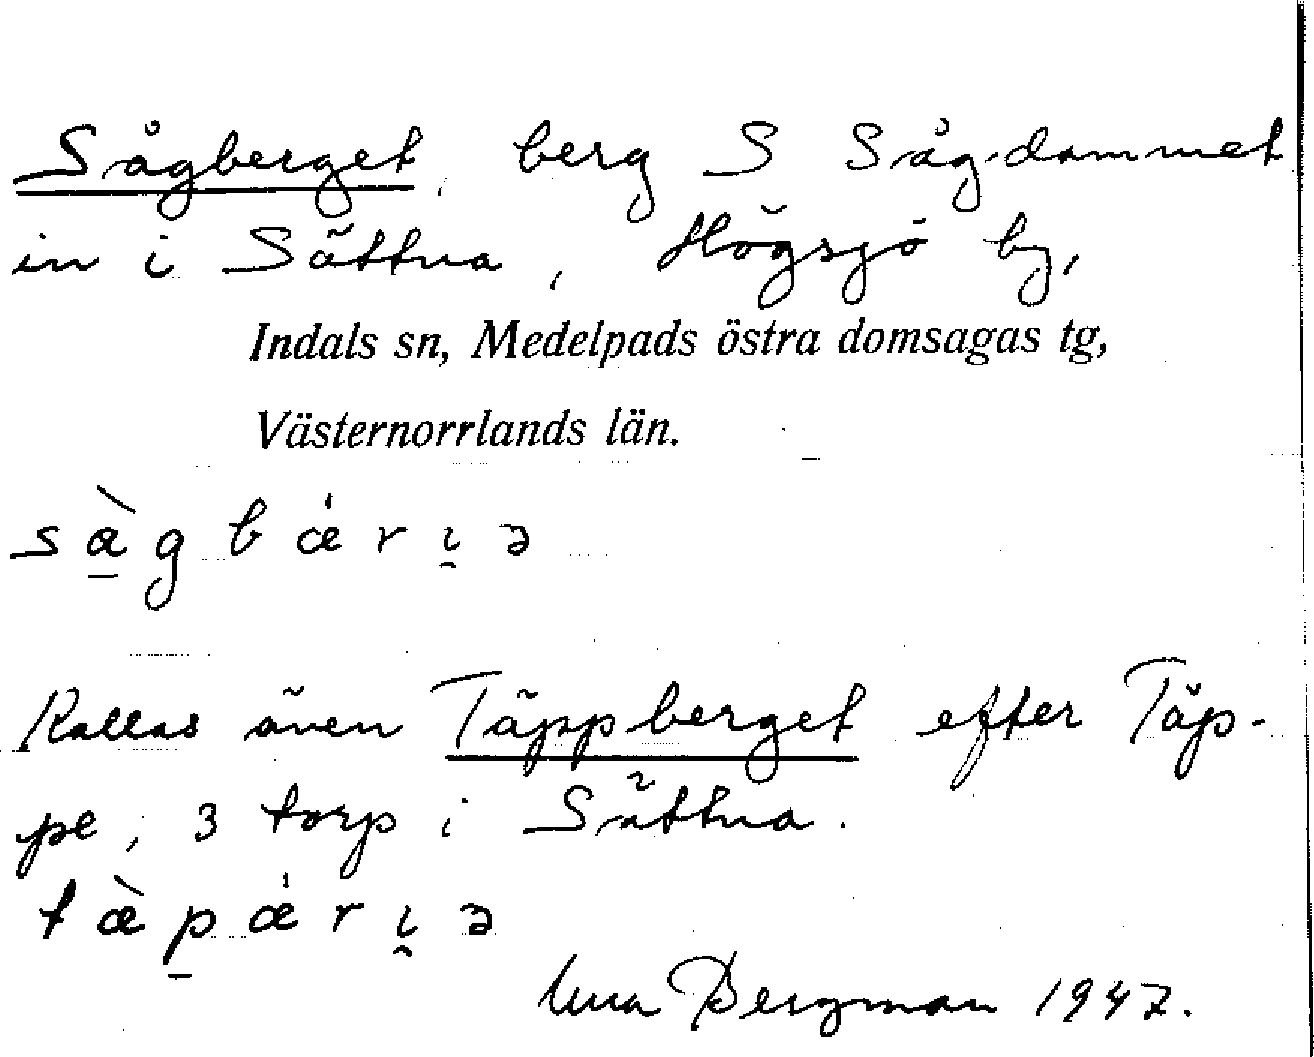 Sågberget, berg S Sågdammet
in i Sättna, Högsjö by,
Indals sn, Medelpads östra domsagas tg,
Västernorrlands län.
sà̲gbǽrɪ̯ə
Kallas även Täppberget efter Täp-
pe, 3 torp i Sättna.
tæ̀p̲ǽrɪ̯ə
Bergman 1947.